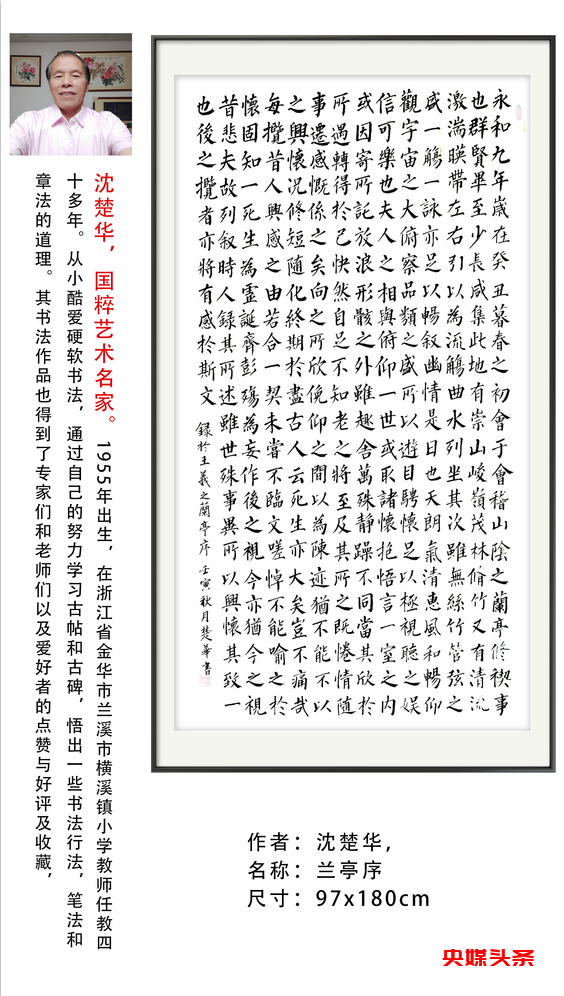 沈楚华，国粹艺术名家。1955年出生，在浙江省金华市兰溪市横溪镇小学教师任教四
十多年。从小酷爱硬软书法，通过自己的努力学习古帖和古碑，悟出一些书法行法，笔法和
章法的道理。其书法作品也得到了专家们和老师们以及爱好者的点赞与好评及收藏，
永和九年歲在癸丑暮春之初會于會稽山陰之蘭亭修禊事
也群賢畢至少長咸集此地有崇山峻嶺茂林脩竹又有清流
激湍暎帶左右引以為流觴曲水列坐其次雖無絲竹管弦之
咸一觴一詠亦足以暢叙幽情是日也天朗氣清惠風和暢仰
觀宇宙之大俯察品類之盛所以遊目騁懷足以極視聽之娱
信可樂也夫人之相與俯仰一世或取諸懷抱悟言一室之内
或因寄所託放浪形骸之外雖趣舍萬殊静躁不同當其欣於
所遇轉得於己快然自足不知老之將至及其所之既惓情隨
事遷感慨係之矣向之所欣俛仰之間以為陳迹猶不能不以
之興懷况修短隨化終期於盡古人云死生亦大矣豈不痛哉
每攬昔人興感之由若合一契未嘗不臨文嗟悼不能喻之於
懷固知一死生為虛誕齊彭殤為妄作後之視今亦猶今之視
昔悲夫故列叙時人録其所述雖世殊事異所以興懷其致一
也後之攬者亦將有感於斯文
録於王羲之蘭亭序 壬寅秋月楚華書
作者：沈楚华，
名称：兰亭序
尺寸：97x180cm
央媒头条